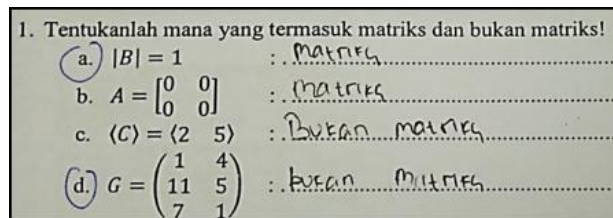 1. Tentukanlah mana yang termasuk matriks dan bukan matriks!
a. |B| = 1 : matriks
b. A = [0 0
0 0] : matriks
c. ⟨C⟩ = ⟨2 5⟩ : Bukan matriks
d. G = (1 4
11 5
7 1) : bukan matriks